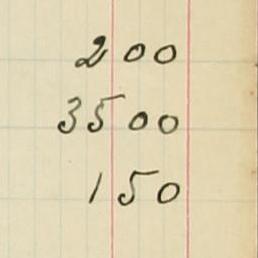 200
3500
150